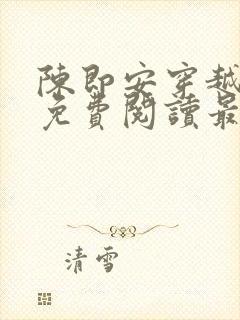 陳即安穿越
免費閱讀最
清雪